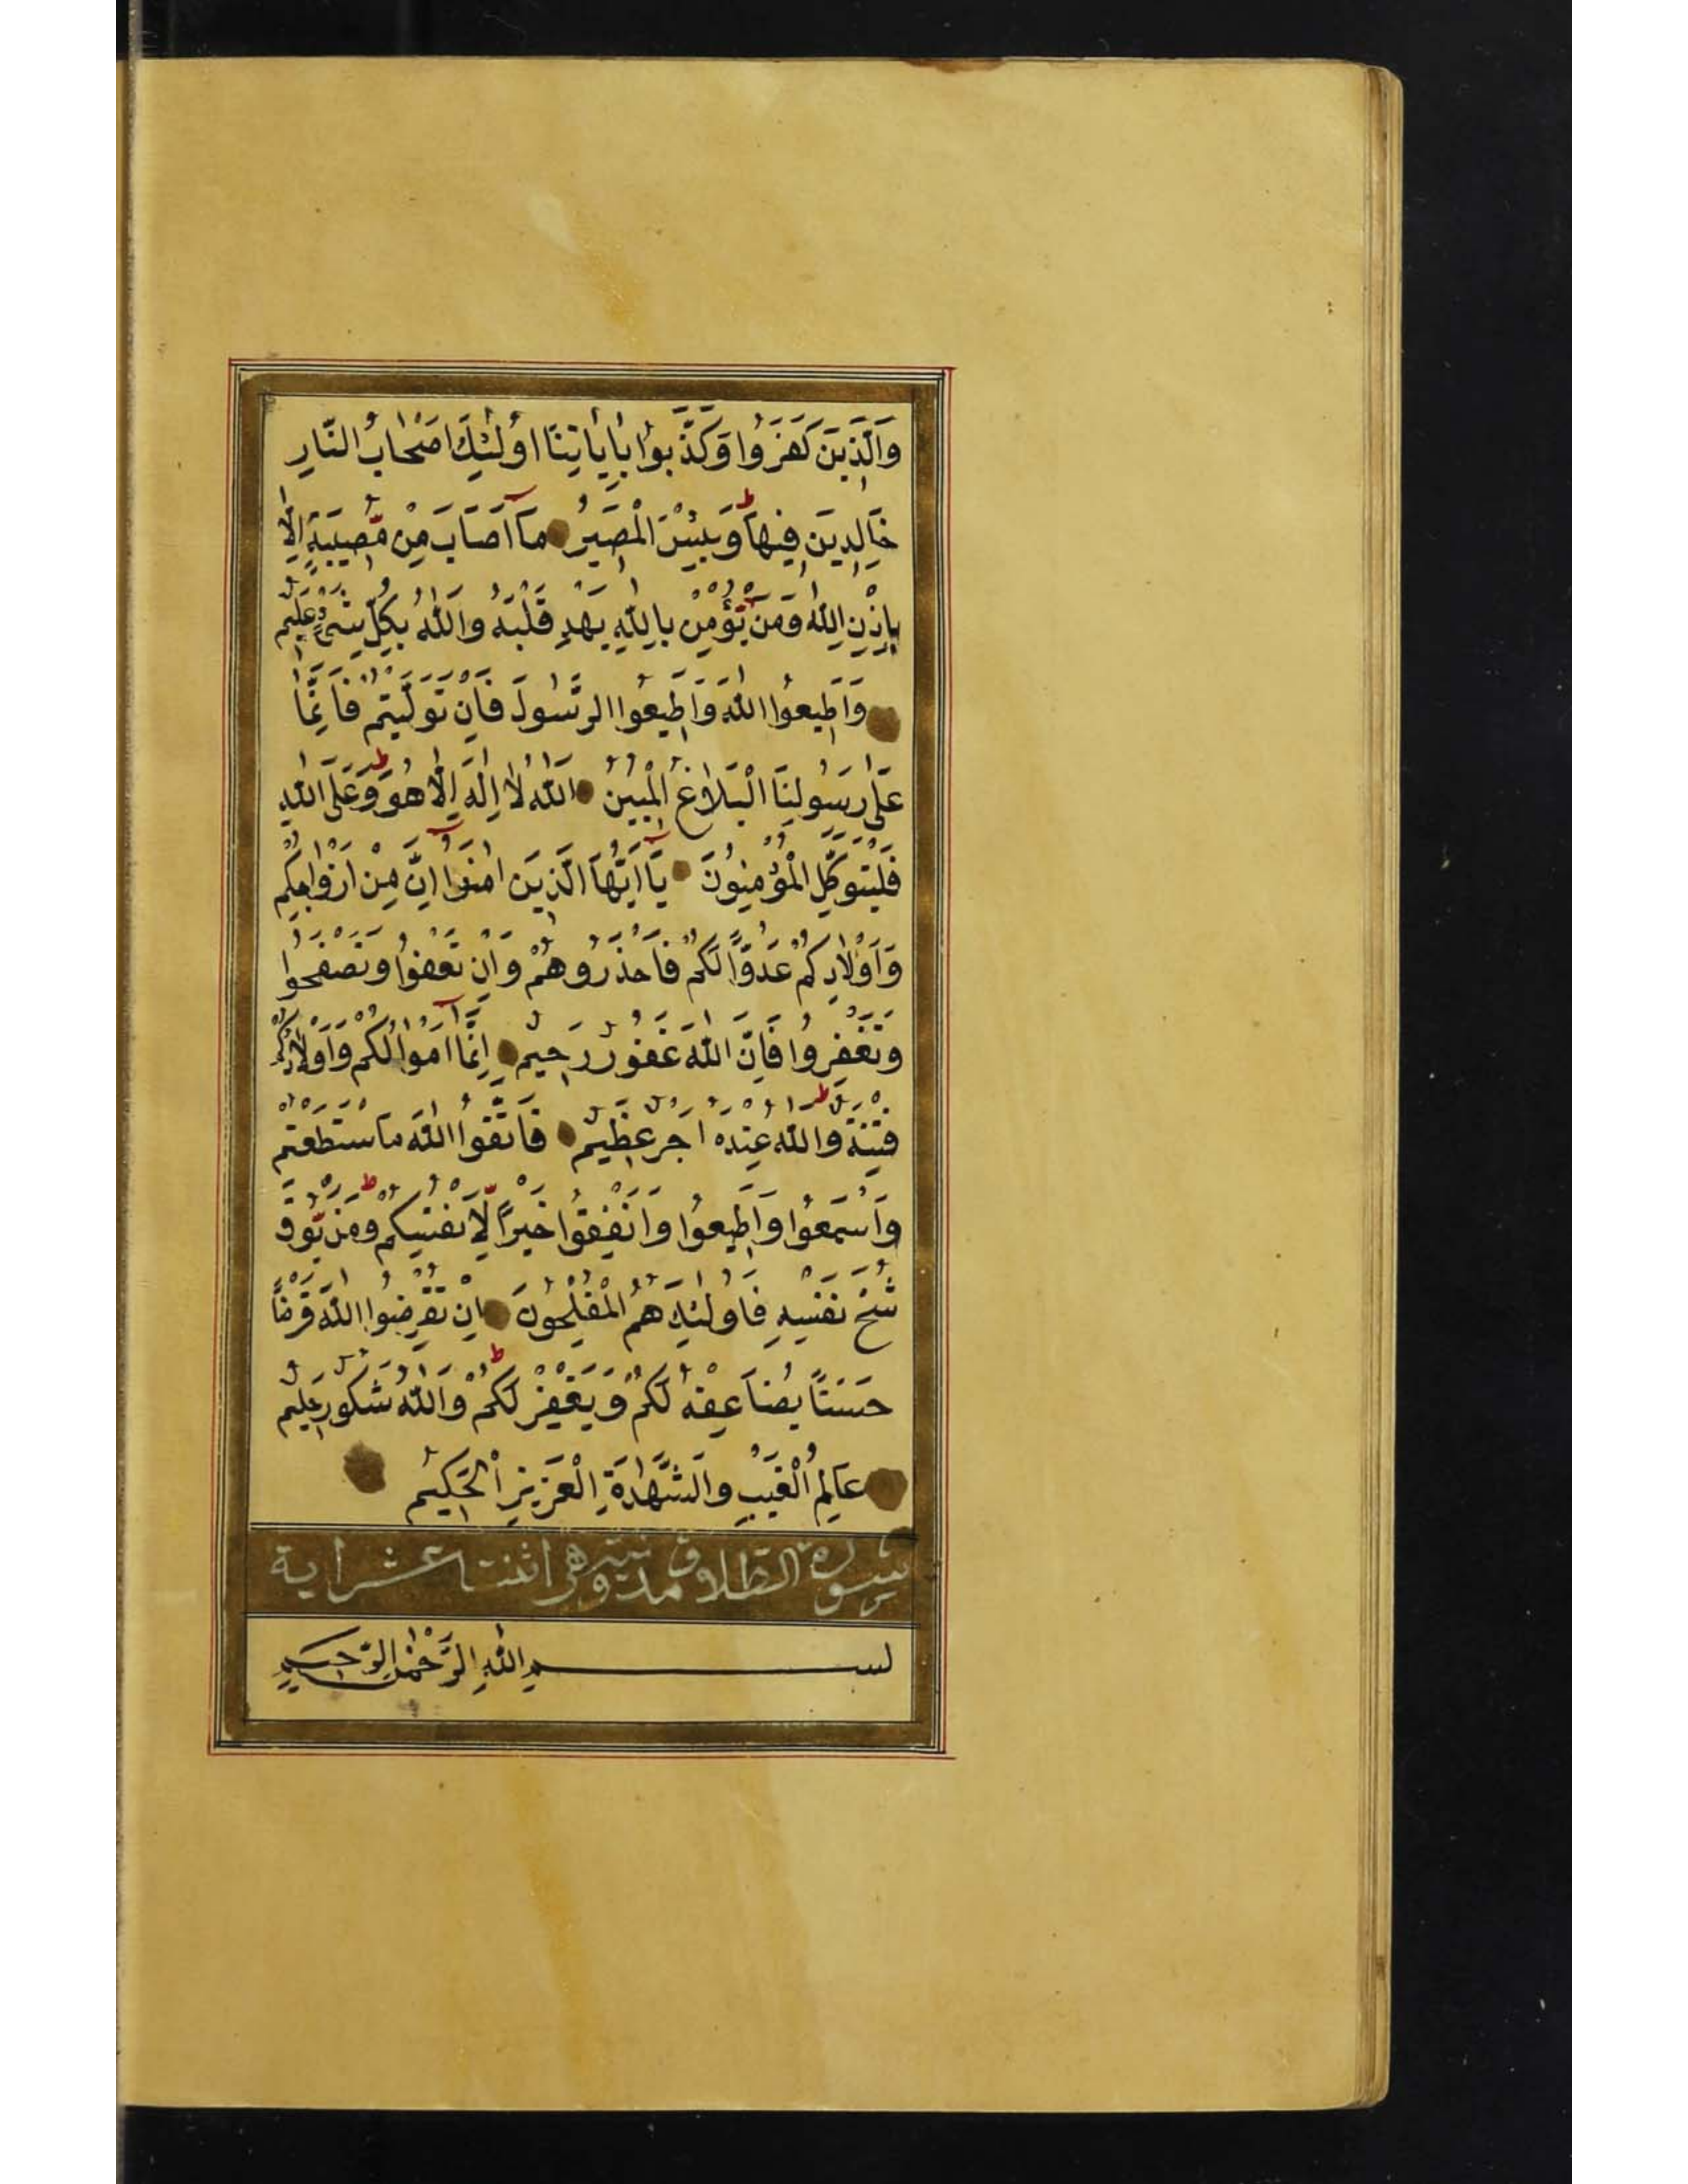 وَالَّذِينَ كَفَرُوا وَكَذَّبُوا بِاٰيَاتِنَا اُولٰئِكَ اَصْحَابُ النَّارِ
خَالِدِينَ فِيهَا ط وَبِئْسَ الْمَصِيرُ مَآ اَصَابَ مِنْ مُّصِيبَةٍ اِلَّا
بِاِذْنِ اللّٰهِ وَمَنْ يُّؤْمِنْ بِاللّٰهِ يَهْدِ قَلْبَهُ وَاللّٰهُ بِكُلِّ شَيْءٍ عَلِيمٌ
وَاَطِيعُوا اللّٰهَ وَاَطِيعُوا الرَّسُولَ فَاِنْ تَوَلَّيْتُمْ فَاِنَّمَا
عَلٰى رَسُولِنَا الْبَلَاغُ الْمُبِينُ اَللّٰهُ لَا اِلٰهَ اِلَّا هُوَ ط وَعَلَى اللّٰهِ
فَلْيَتَوَكَّلِ الْمُؤْمِنُونَ يَآ اَيُّهَا الَّذِينَ اٰمَنُوآ اِنَّ مِنْ اَزْوَاجِكُمْ
وَاَوْلَادِكُمْ عَدُوًّا لَكُمْ فَاحْذَرُوهُمْ وَاِنْ تَعْفُوا وَتَصْفَحُوا
وَتَغْفِرُوا فَاِنَّ اللّٰهَ غَفُورٌ رَحِيمٌ اِنَّمَآ اَمْوَالُكُمْ وَاَوْلَادُكُمْ
فِتْنَةٌ ط وَاللّٰهُ عِنْدَهُ اَجْرٌ عَظِيمٌ فَاتَّقُوا اللّٰهَ مَا اسْتَطَعْتُمْ
وَاسْمَعُوا وَاَطِيعُوا وَاَنْفِقُوا خَيْرًا لِّاَنْفُسِكُمْ ط وَمَنْ يُّوقَ
شُحَّ نَفْسِهِ فَاُولٰئِكَ هُمُ الْمُفْلِحُونَ اِنْ تُقْرِضُوا اللّٰهَ قَرْضًا
حَسَنًا يُضَاعِفْهُ لَكُمْ وَيَغْفِرْ لَكُمْ ط وَاللّٰهُ شَكُورٌ حَلِيمٌ
عَالِمُ الْغَيْبِ وَالشَّهَادَةِ الْعَزِيزُ الْحَكِيمُ
سورة الطلاق مدنية وهى اثنتا عشر اية
بسم اللّٰهِ الرَّحْمٰنِ الرَّحِيمِ